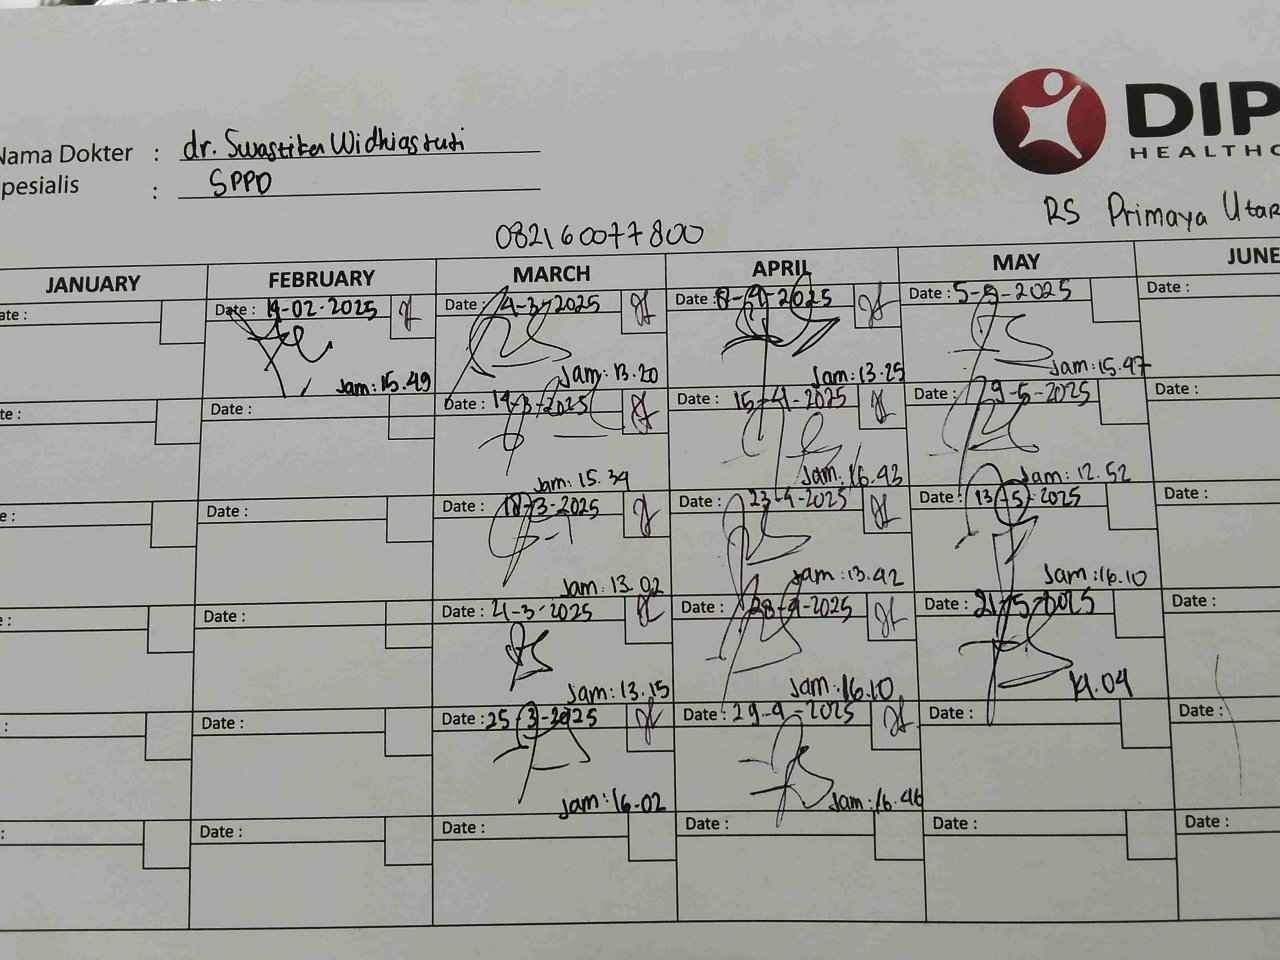 DIP
HEALTHC
Nama Dokter : dr. Swastika Widhiastuti
pesialis : SPPD
RS Primaya Utar
082160077800
JANUARY FEBRUARY MARCH APRIL MAY JUNE
ate: Date: 14-02-2025 Date: 4-3-2025 Date: 8-4-2025 Date: 5-5-2025 Date:
Jam: 15.49 Jam: 13.20 Jam: 13.25 Jam: 15.47
te: Date: Date: 14-3-2025 Date: 15-4-2025 Date: 9-5-2025 Date:
Jam: 15.34 Jam: 16.43 Jam: 12.52
e: Date: Date: 18-3-2025 Date: 23-4-2025 Date: 13-5-2025 Date:
Jam: 13.02 Jam: 13.42 Jam: 16.10
e: Date: Date: 21-3-2025 Date: 28-4-2025 Date: 21-5-2025 Date:
Jam: 13.15 Jam: 16.10 14.04
: Date: Date: 25-3-2025 Date: 29-4-2025 Date: Date:
Jam: 16.02 Jam: 16.46
: Date: Date: Date: Date: Date: